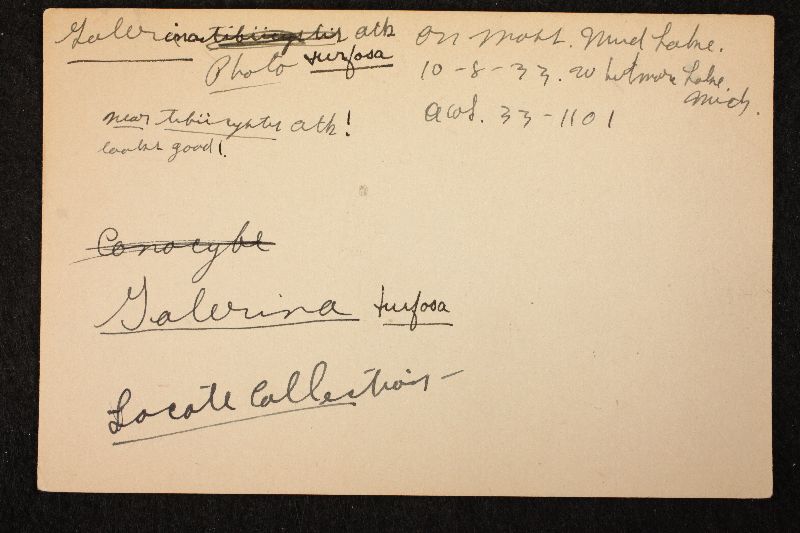 Galerina tibiicystis atk
Photo turfosa
near tibiicystis atk!
looks good!
on moss. Mud Lake.
10-8-33. Whitmore Lake,
Mich.
aws. 33-1101
Conocybe
Galerina turfosa
Locate Collection-